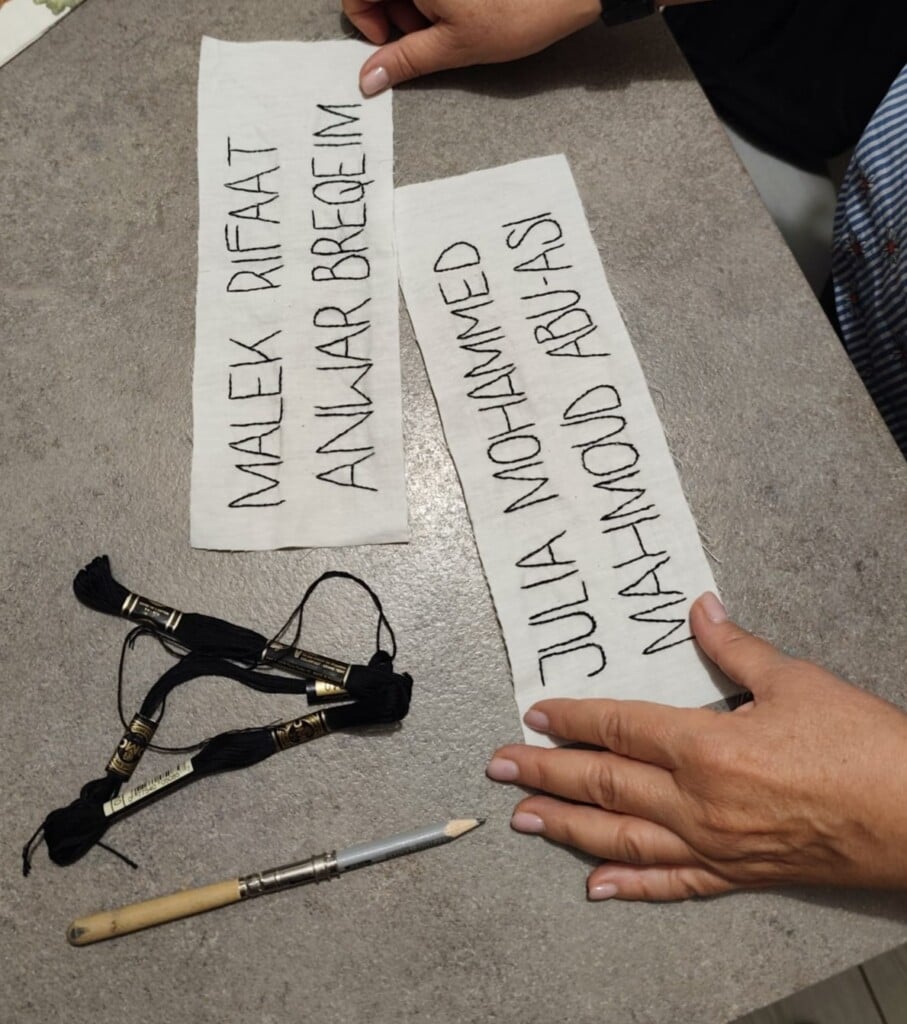 MALEK RIFAAT
ANWAR BREQEIM
JULIA MOHAMMED
MAHMOUD ABU-ASI
DMC